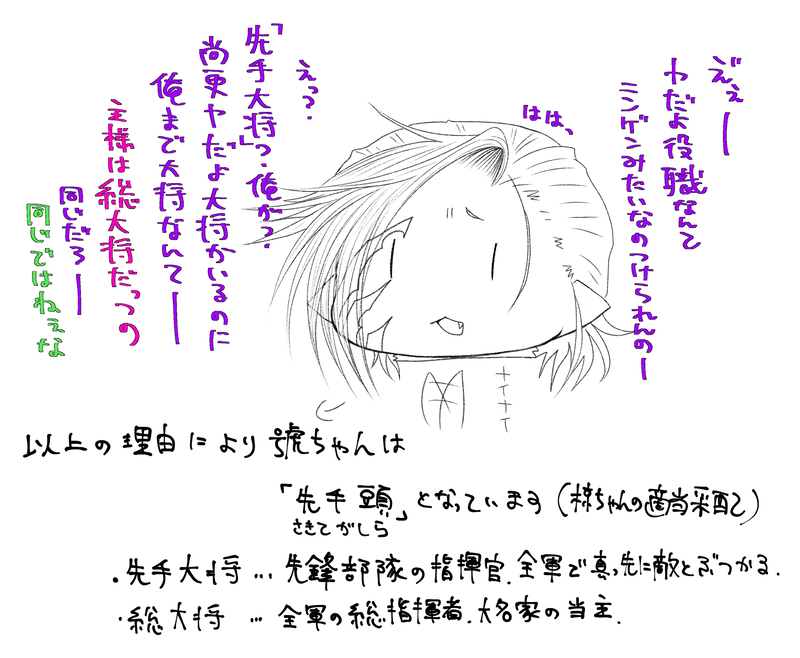 ぶえぇーー
ヤだよ役職なんて
ミンゲンみたいなのつけられんのー
ははっ
えっ？
「先手大将」っ？俺がっ？
尚更ヤだよ大将がいるのに
俺まで大将なんてーー
主様は総大将だっつの
同じだろーー
同じではねぇな
以上の理由により號ちゃんは
「先手頭」となっています（椋ちゃんの適当采配）
さきてがしら
・先手大将…先鋒部隊の指揮官．全軍で真っ先に敵とぶつかる．
・総大将…全軍の総指揮者．大名家の当主．